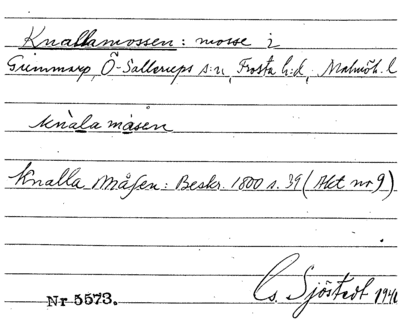 Knallamossen: mosse i
Grimmarp, Ö-Sallerups s:n, Frosta h:d, Malmöh. l
knala måsen
Knalla Måsen: Beskr. 1800 s. 39 (Akt nr 9)
Nr 5573. Cs. Sjöstedt 194